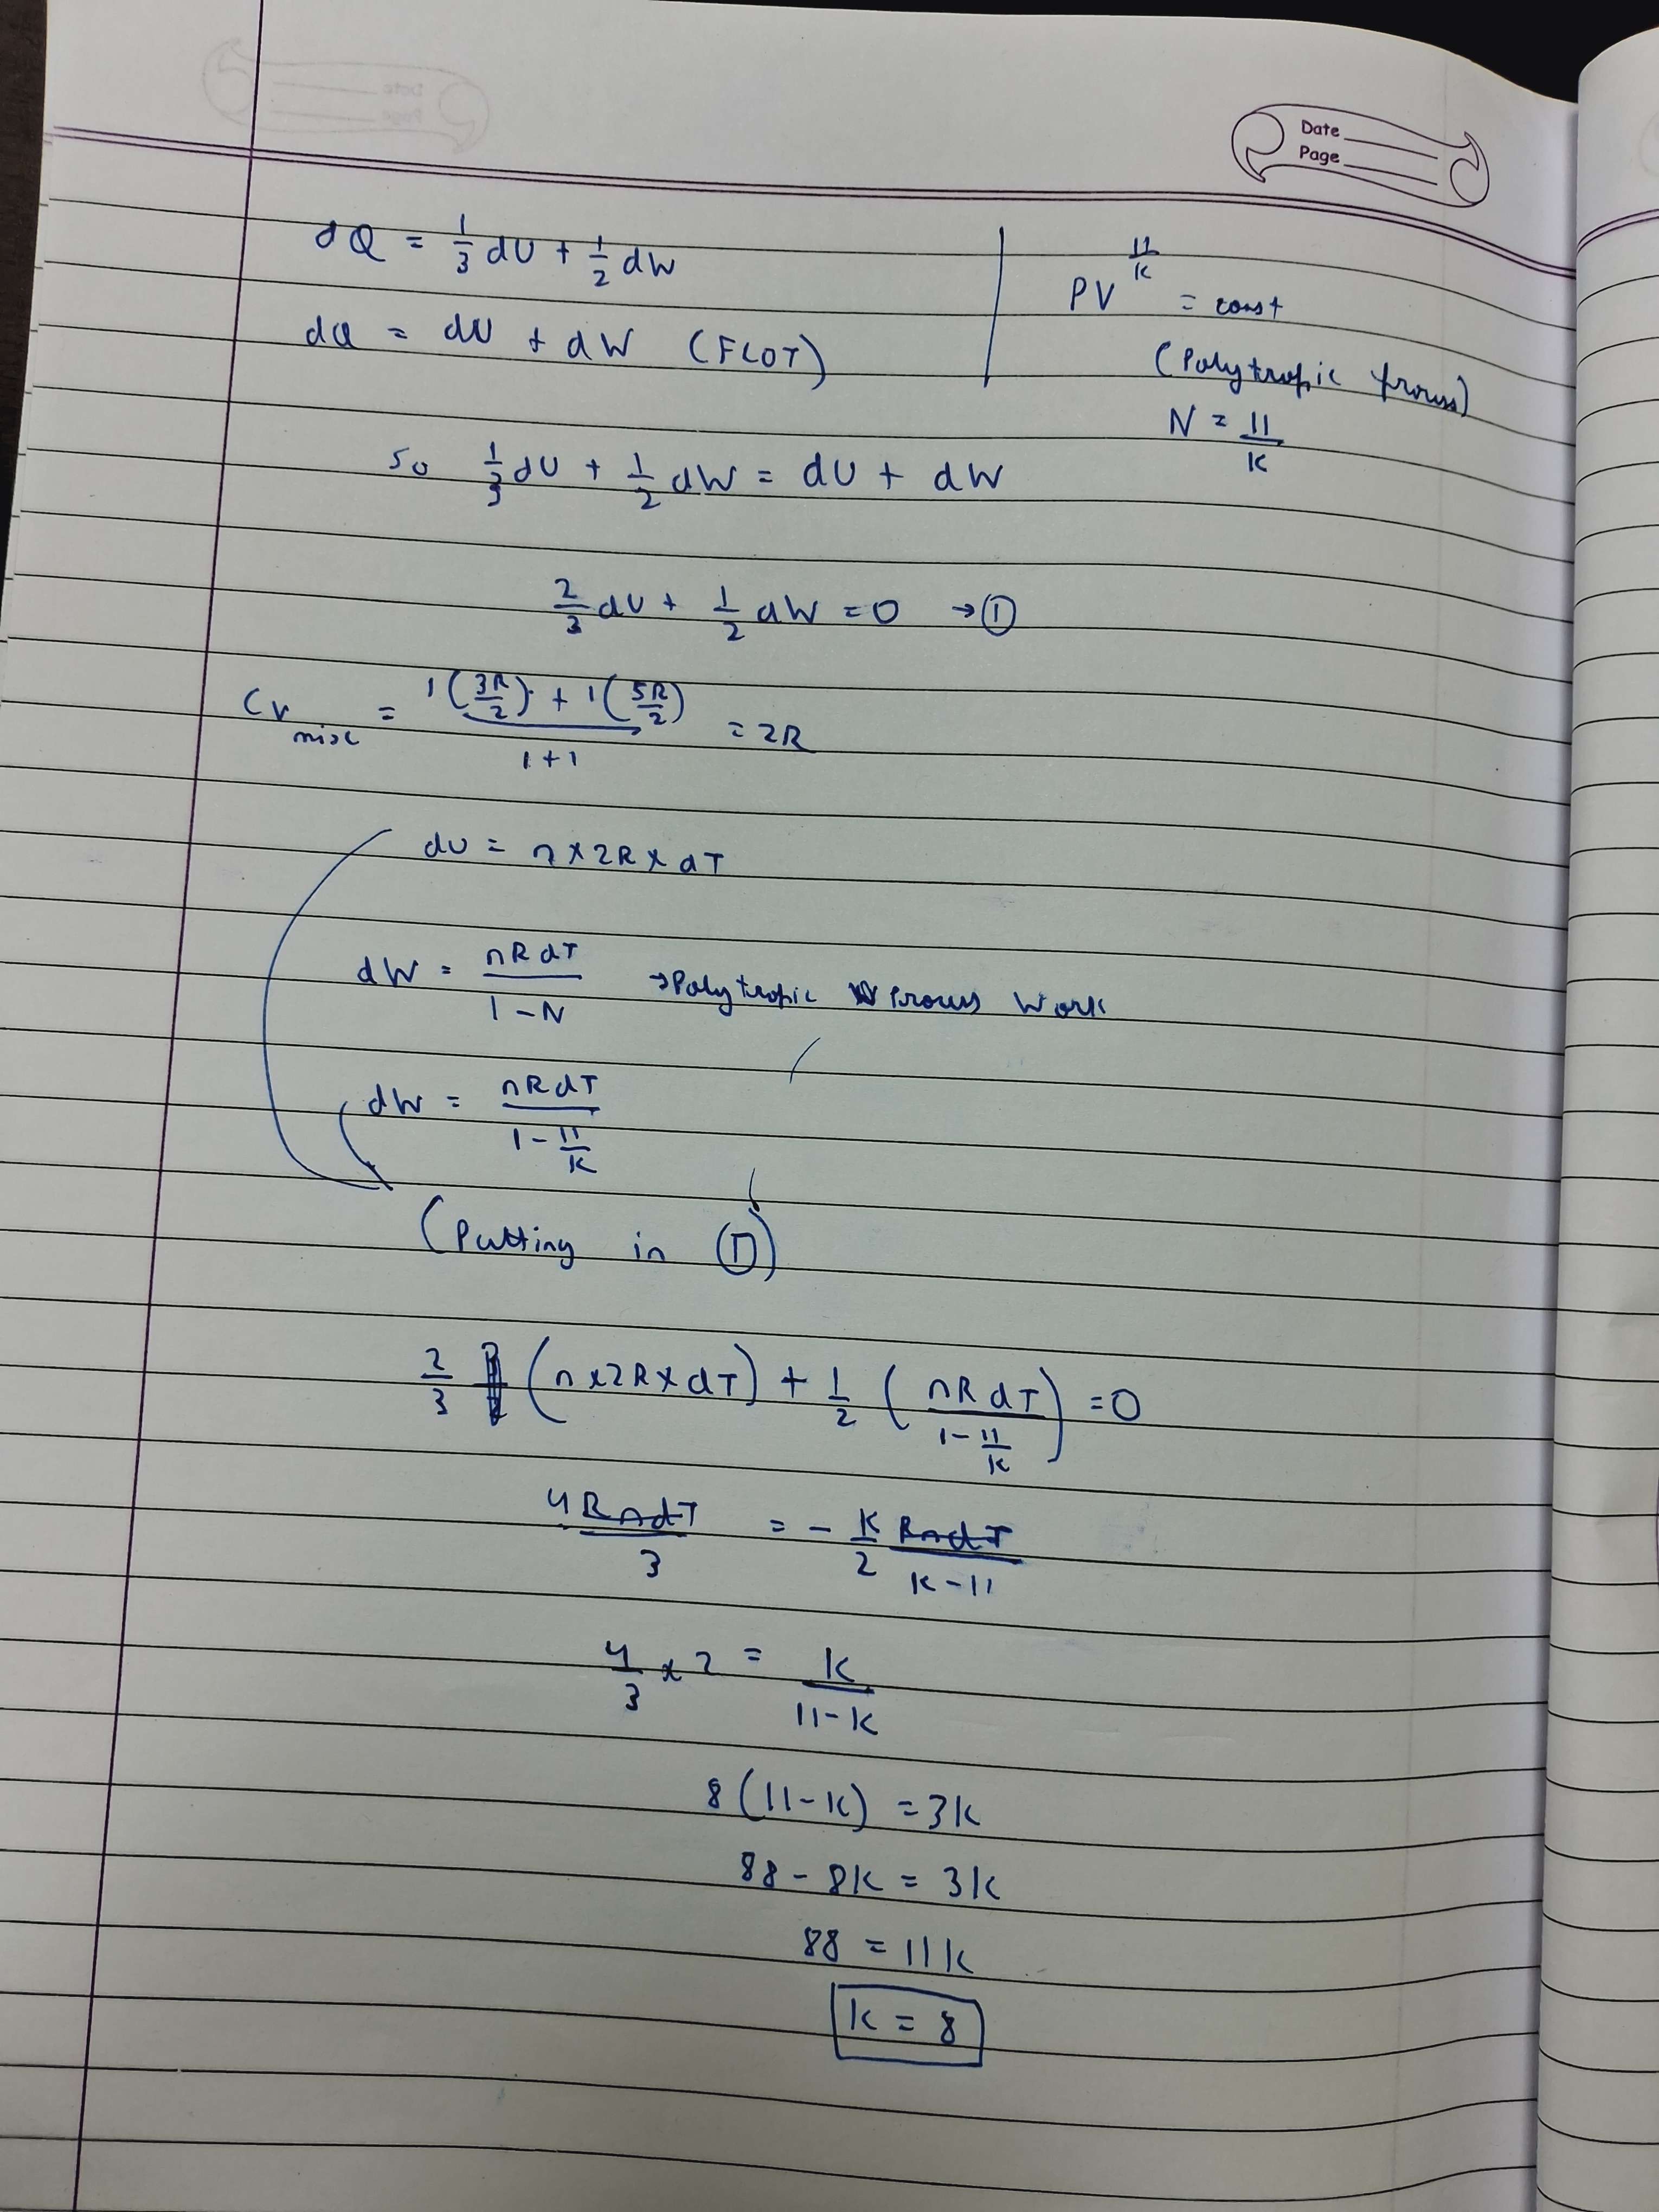 Date
Page
dQ = 1/3 dU + 1/2 dW
dQ = dU + dW (FLOT)
PV^(11/K) = const
(Polytropic process)
N = 11/K
So 1/3 dU + 1/2 dW = dU + dW
2/3 dU + 1/2 dW = 0 → ①
Cv mix = (1(3R/2) + 1(5R/2))/(1+1) = 2R
dU = n×2R×dT
dW = nRdT/(1-N) → Polytropic Process Work
dW = nRdT/(1-11/K)
(Putting in ①)
2/3 (n×2R×dT) + 1/2 (nRdT/(1-11/K)) = 0
4RndT/3 = - K/2 RndT/(K-11)
4/3 × 2 = K/(11-K)
8(11-K) = 3K
88 - 8K = 3K
88 = 11K
K = 8